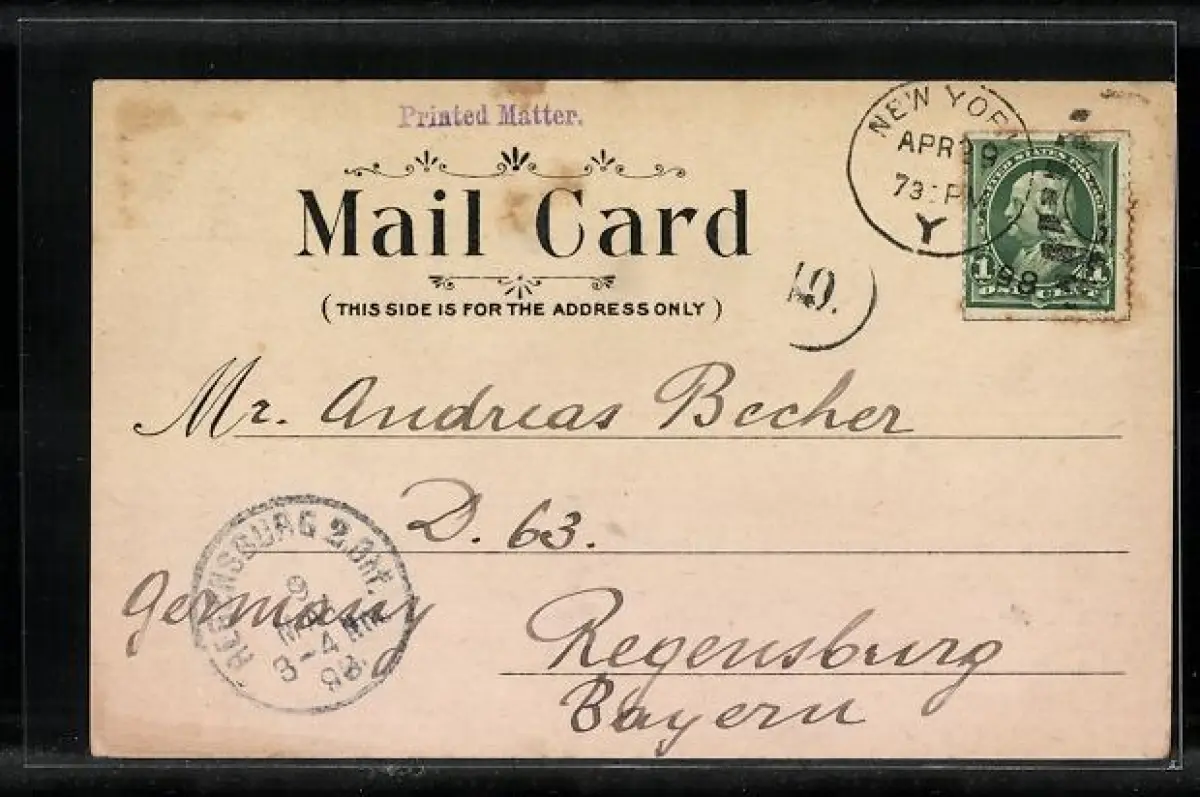 Printed Matter.
Mail Card
(THIS SIDE IS FOR THE ADDRESS ONLY)
NEW YORK
APR 29
730 PM
Y
98
UNITED STATES POSTAGE
1 1
ONE CENT
Mr. Andreas Becher
D. 63.
Germany
Regensburg
Bayern
REGENSBURG 2. Bhf.
9
MAI
3-4 NM
98.